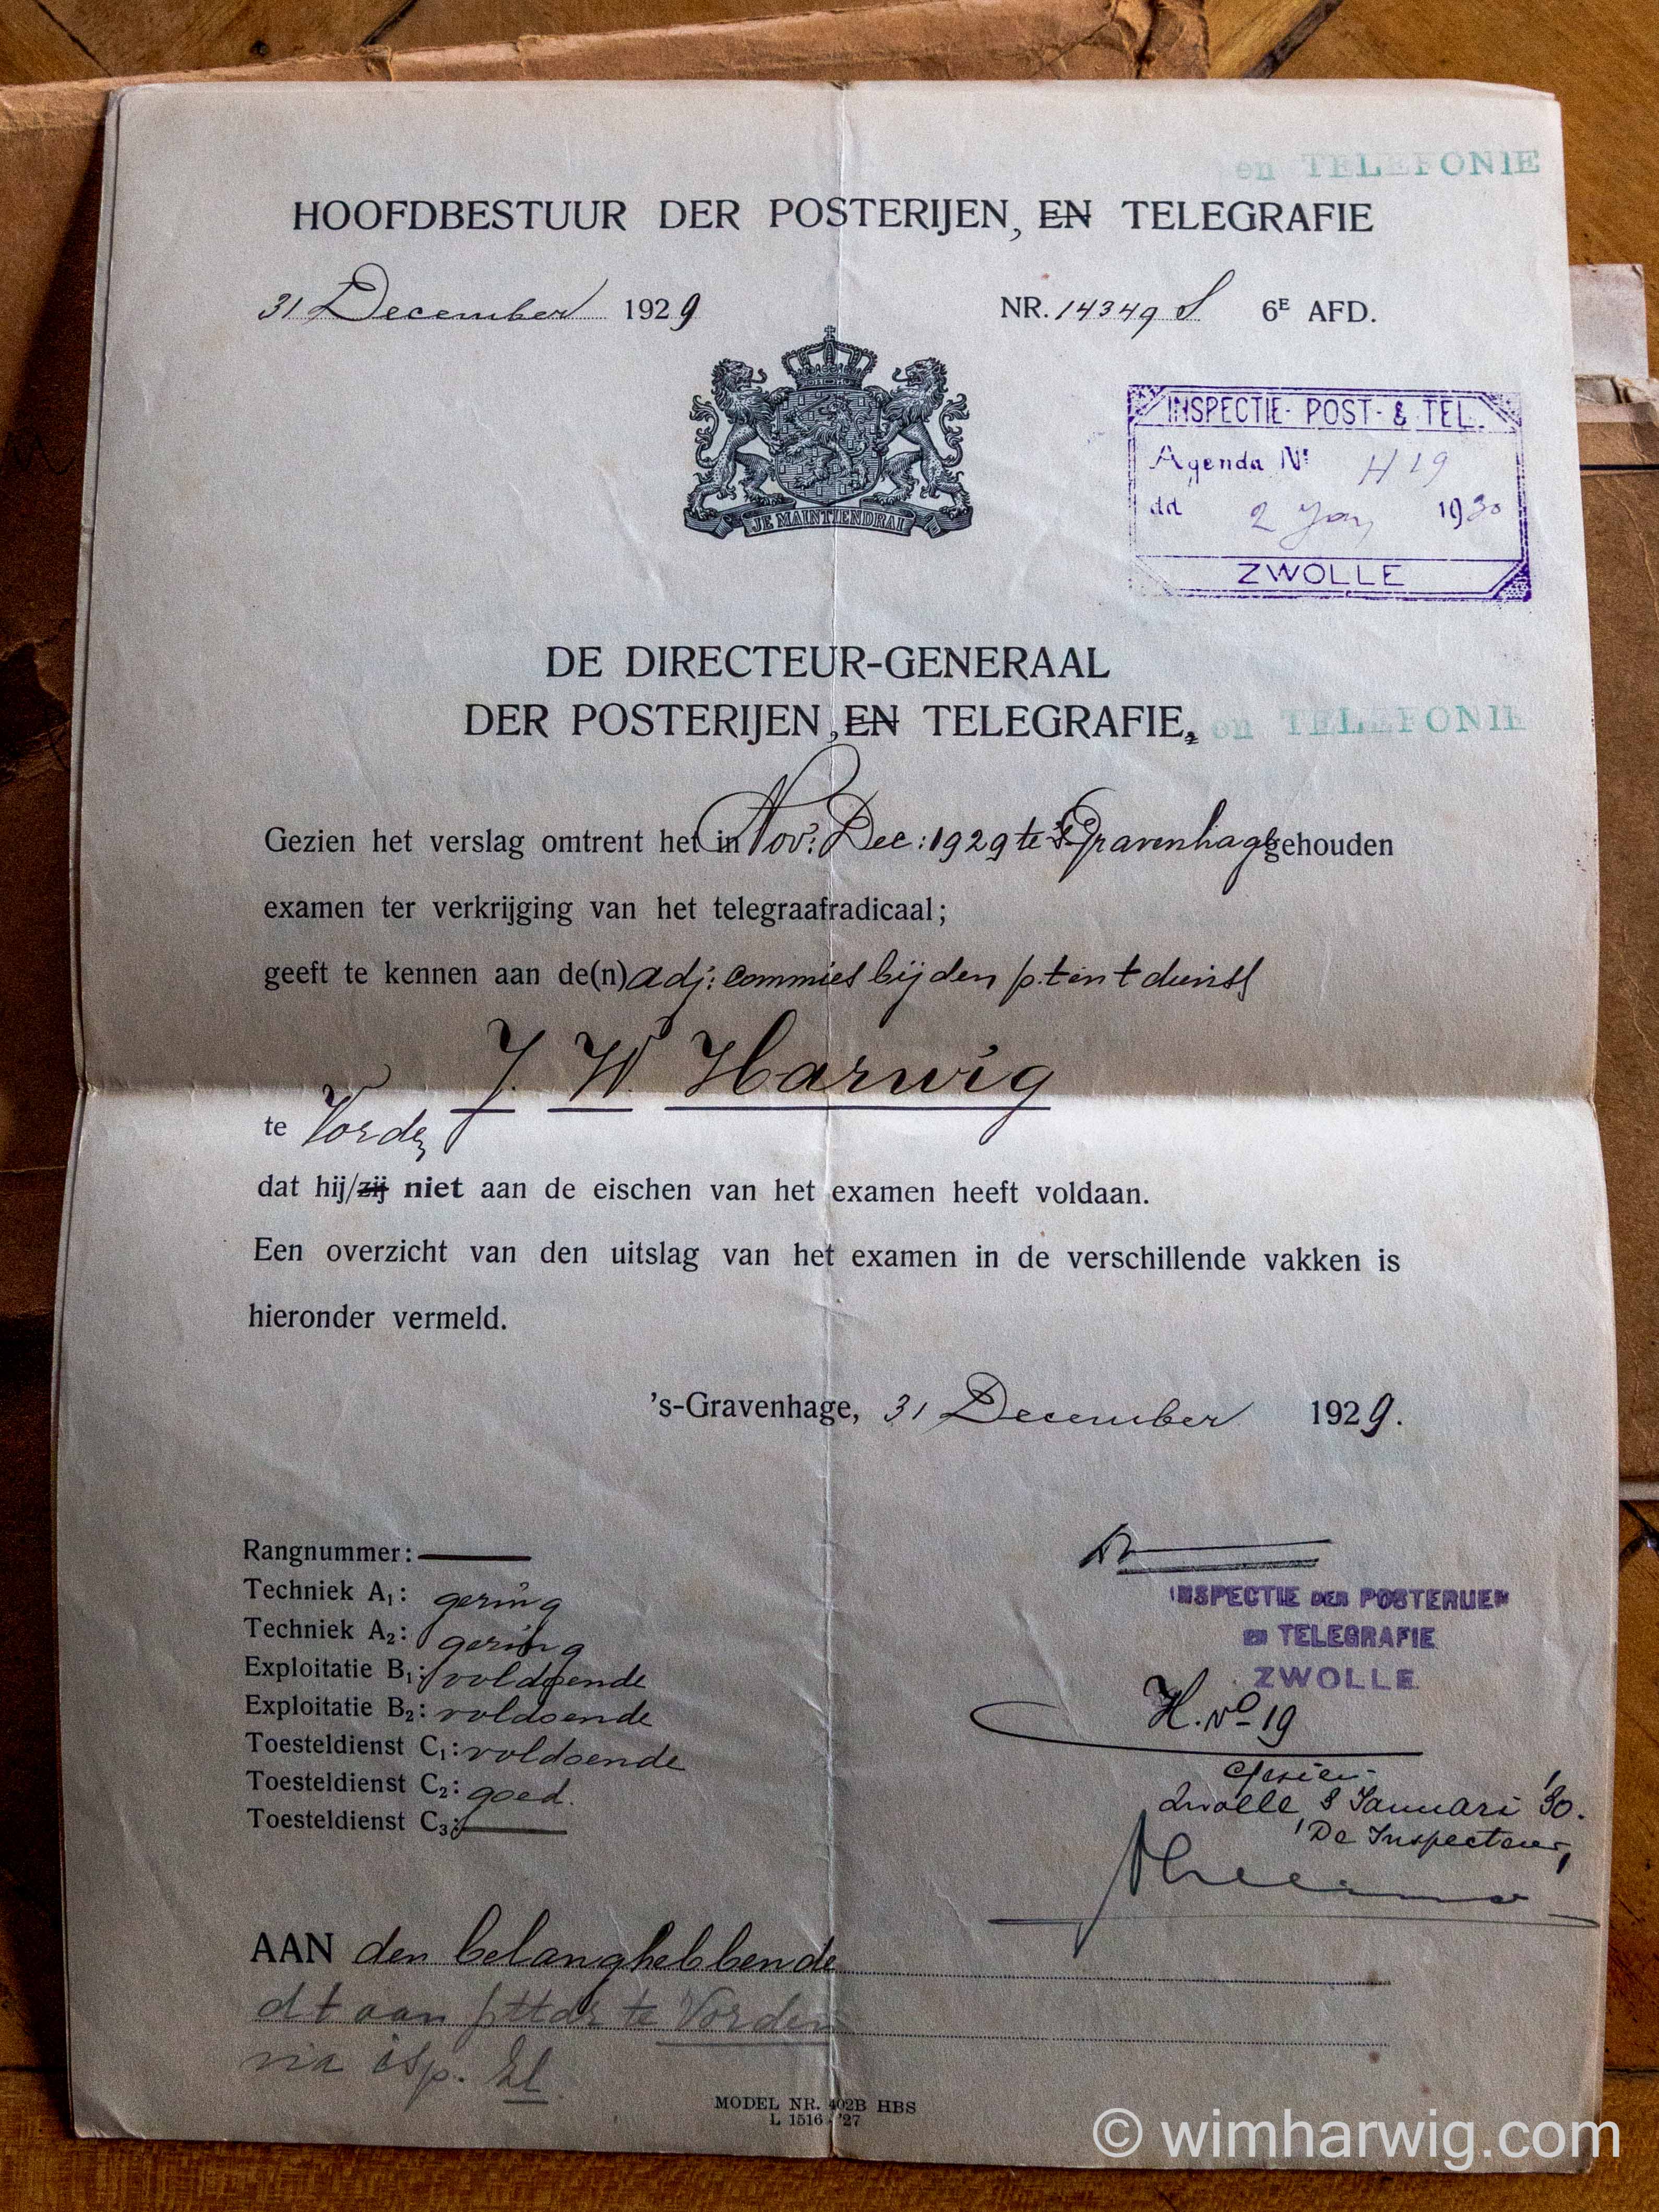 en TELEFONIE
HOOFDBESTUUR DER POSTERIJEN, EN TELEGRAFIE
31 December 1929 NR. 14349 S 6E AFD.
JE MAINTIENDRAI
INSPECTIE POST- & TEL.
Agenda No H 19
dd 2 Jan 1930
ZWOLLE
DE DIRECTEUR-GENERAAL
DER POSTERIJEN, EN TELEGRAFIE, en TELEFONIE
Gezien het verslag omtrent het in Nov: Dec: 1929 te 's Gravenhage gehouden
examen ter verkrijging van het telegraafradicaal;
geeft te kennen aan de(n) adj: commies bij den p.t en t dienst
J. W. Harwig
te Vorden
dat hij/zij niet aan de eischen van het examen heeft voldaan.
Een overzicht van den uitslag van het examen in de verschillende vakken is
hieronder vermeld.
's-Gravenhage, 31 December 1929.
Rangnummer:
Techniek A1: gering
Techniek A2: gering
Exploitatie B1: voldoende
Exploitatie B2: voldoende
Toesteldienst C1: voldoende
Toesteldienst C2: goed.
Toesteldienst C3:
INSPECTIE DER POSTERIJEN
en TELEGRAFIE
ZWOLLE
H. No 19
Gezien
Zwolle, 8 Januari '30.
De Inspecteur,
AAN den belanghebbende
dt aan pttdr te Vorden
via isp. Zl
MODEL NR. 402B HBS
L 1516 - '27
© wimharwig.com